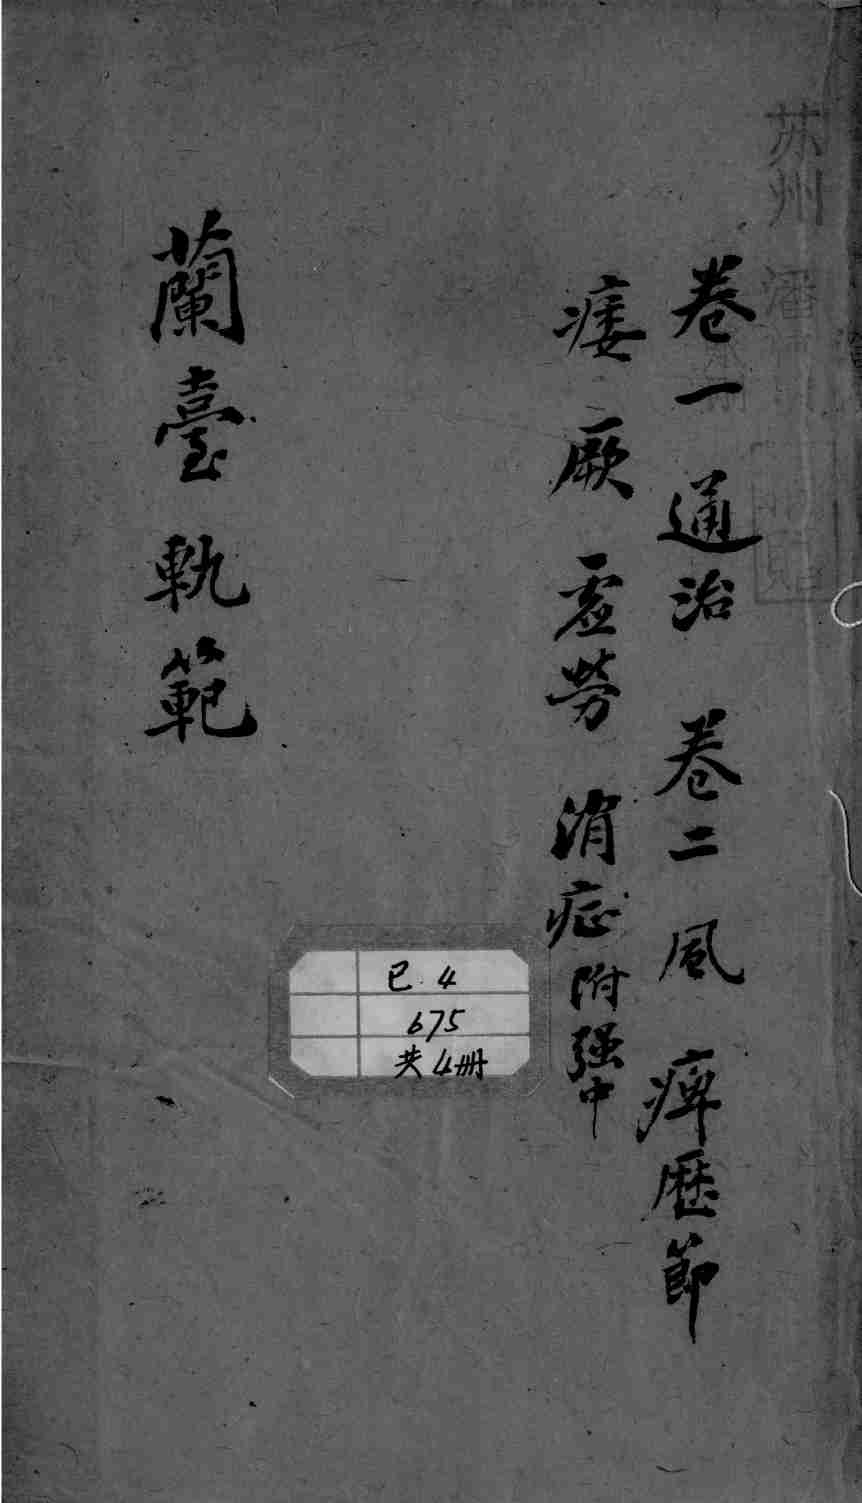 苏州
卷一 通治 卷二 風 痺 歷節
痿 厥 虛勞 消症 附强中
蘭臺軌範
已.4
675
共4册